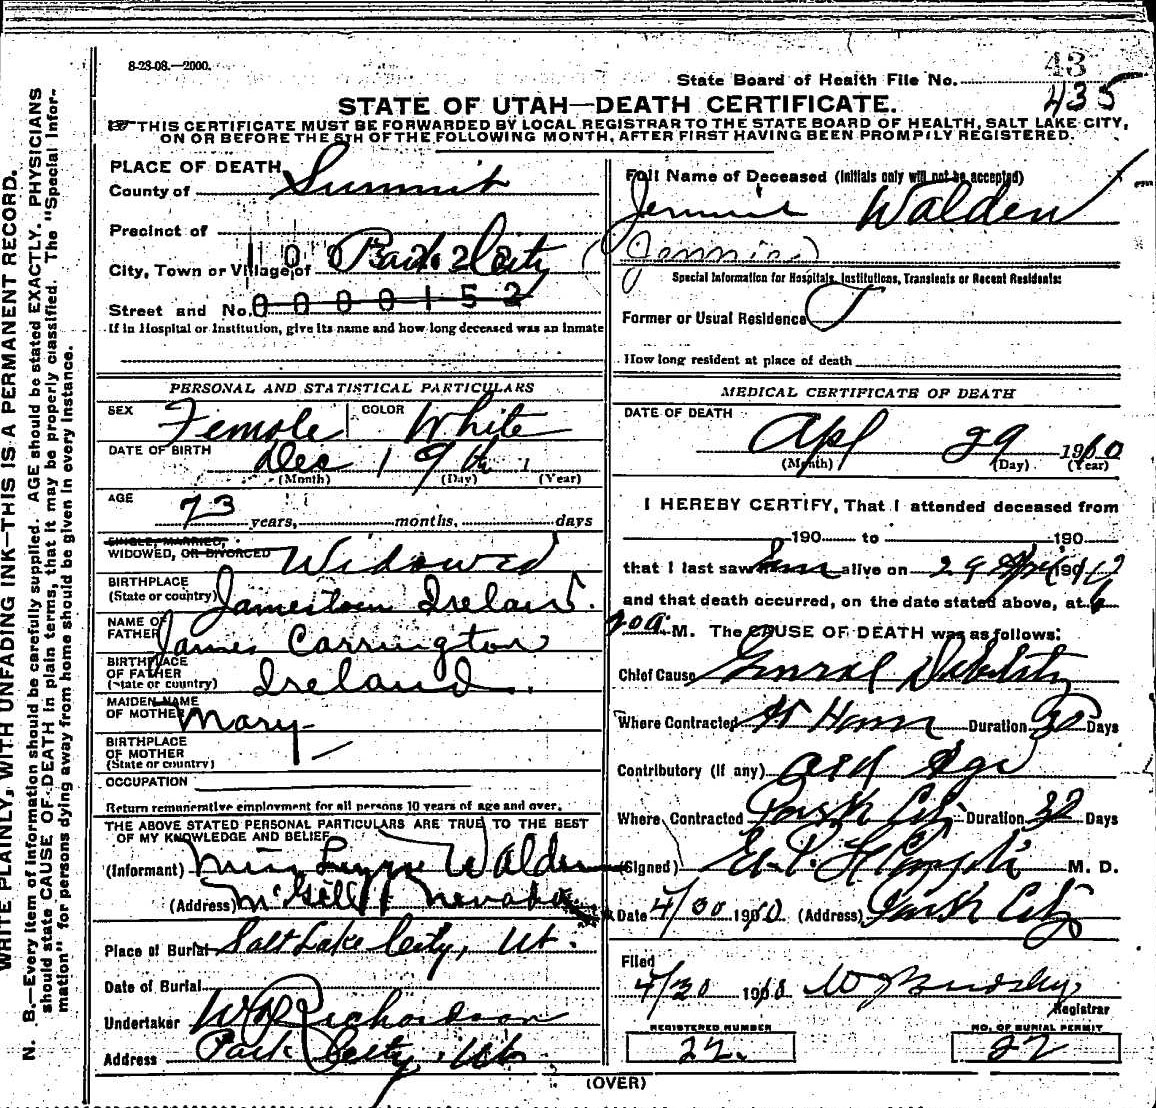 8-28-08.—2000.
43
State Board of Health File No. 435
STATE OF UTAH—DEATH CERTIFICATE.
THIS CERTIFICATE MUST BE FORWARDED BY LOCAL REGISTRAR TO THE STATE BOARD OF HEALTH, SALT LAKE CITY,
ON OR BEFORE THE 5TH OF THE FOLLOWING MONTH, AFTER FIRST HAVING BEEN PROMPTLY REGISTERED.
PLACE OF DEATH
County of Summit
Precinct of
City, Town or Village of Park City
Street and No. 0 0 0 0 1 5 2
If in Hospital or Institution, give its name and how long deceased was an inmate
PERSONAL AND STATISTICAL PARTICULARS
SEX Female COLOR White
DATE OF BIRTH Dec 19th
(Month) (Day) (Year)
AGE 73 years, months, days
SINGLE, MARRIED,
WIDOWED, OR DIVORCED Widowed
BIRTHPLACE
(State or country) Jamestown Ireland.
NAME OF
FATHER James Carrington
BIRTHPLACE
OF FATHER
(State or country) Ireland.
MAIDEN NAME
OF MOTHER Mary
BIRTHPLACE
OF MOTHER
(State or country)
OCCUPATION
Return remunerative employment for all persons 10 years of age and over.
THE ABOVE STATED PERSONAL PARTICULARS ARE TRUE TO THE BEST
OF MY KNOWLEDGE AND BELIEF
(Informant) Miss Walden
(Address) McGill Nevada
Place of Burial Salt Lake City, Ut.
Date of Burial
Undertaker Richardson
Address Park City, Ut.
Full Name of Deceased (Initials only will not be accepted)
Jennie Walden
(Jennie)
Special Information for Hospitals, Institutions, Transients or Recent Residents:
Former or Usual Residence
How long resident at place of death
MEDICAL CERTIFICATE OF DEATH
DATE OF DEATH
Apl 29 1910
(Month) (Day) (Year)
I HEREBY CERTIFY, That I attended deceased from
190 to 190
that I last saw alive on 29 190
and that death occurred, on the date stated above, at
M. The CAUSE OF DEATH was as follows:
Chief Cause General Debility
Where Contracted At Home Duration 30 Days
Contributory (if any) Old Age
Where Contracted Park City Duration 30 Days
(Signed) M. D.
Date 4/30 1910 (Address) Park City
Filed
4/30 1910
Registrar
REGISTERED NUMBER
22.
NO. OF BURIAL PERMIT
22
(OVER)
WRITE PLAINLY, WITH UNFADING INK—THIS IS A PERMANENT RECORD.
N. B.—Every item of information should be carefully supplied. AGE should be stated EXACTLY. PHYSICIANS
should state CAUSE OF DEATH in plain terms, that it may be properly classified. The "Special Infor-
mation" for persons dying away from home should be given in every instance.